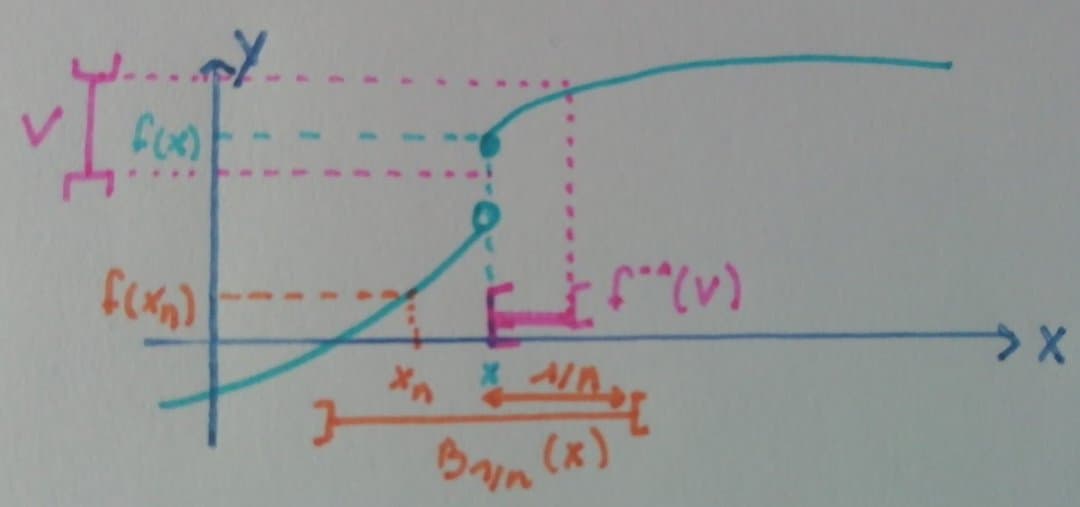 y
V
f(x)
f(xₙ)
f⁻¹(V)
x
xₙ
x
1/n
B₁/ₙ(x)